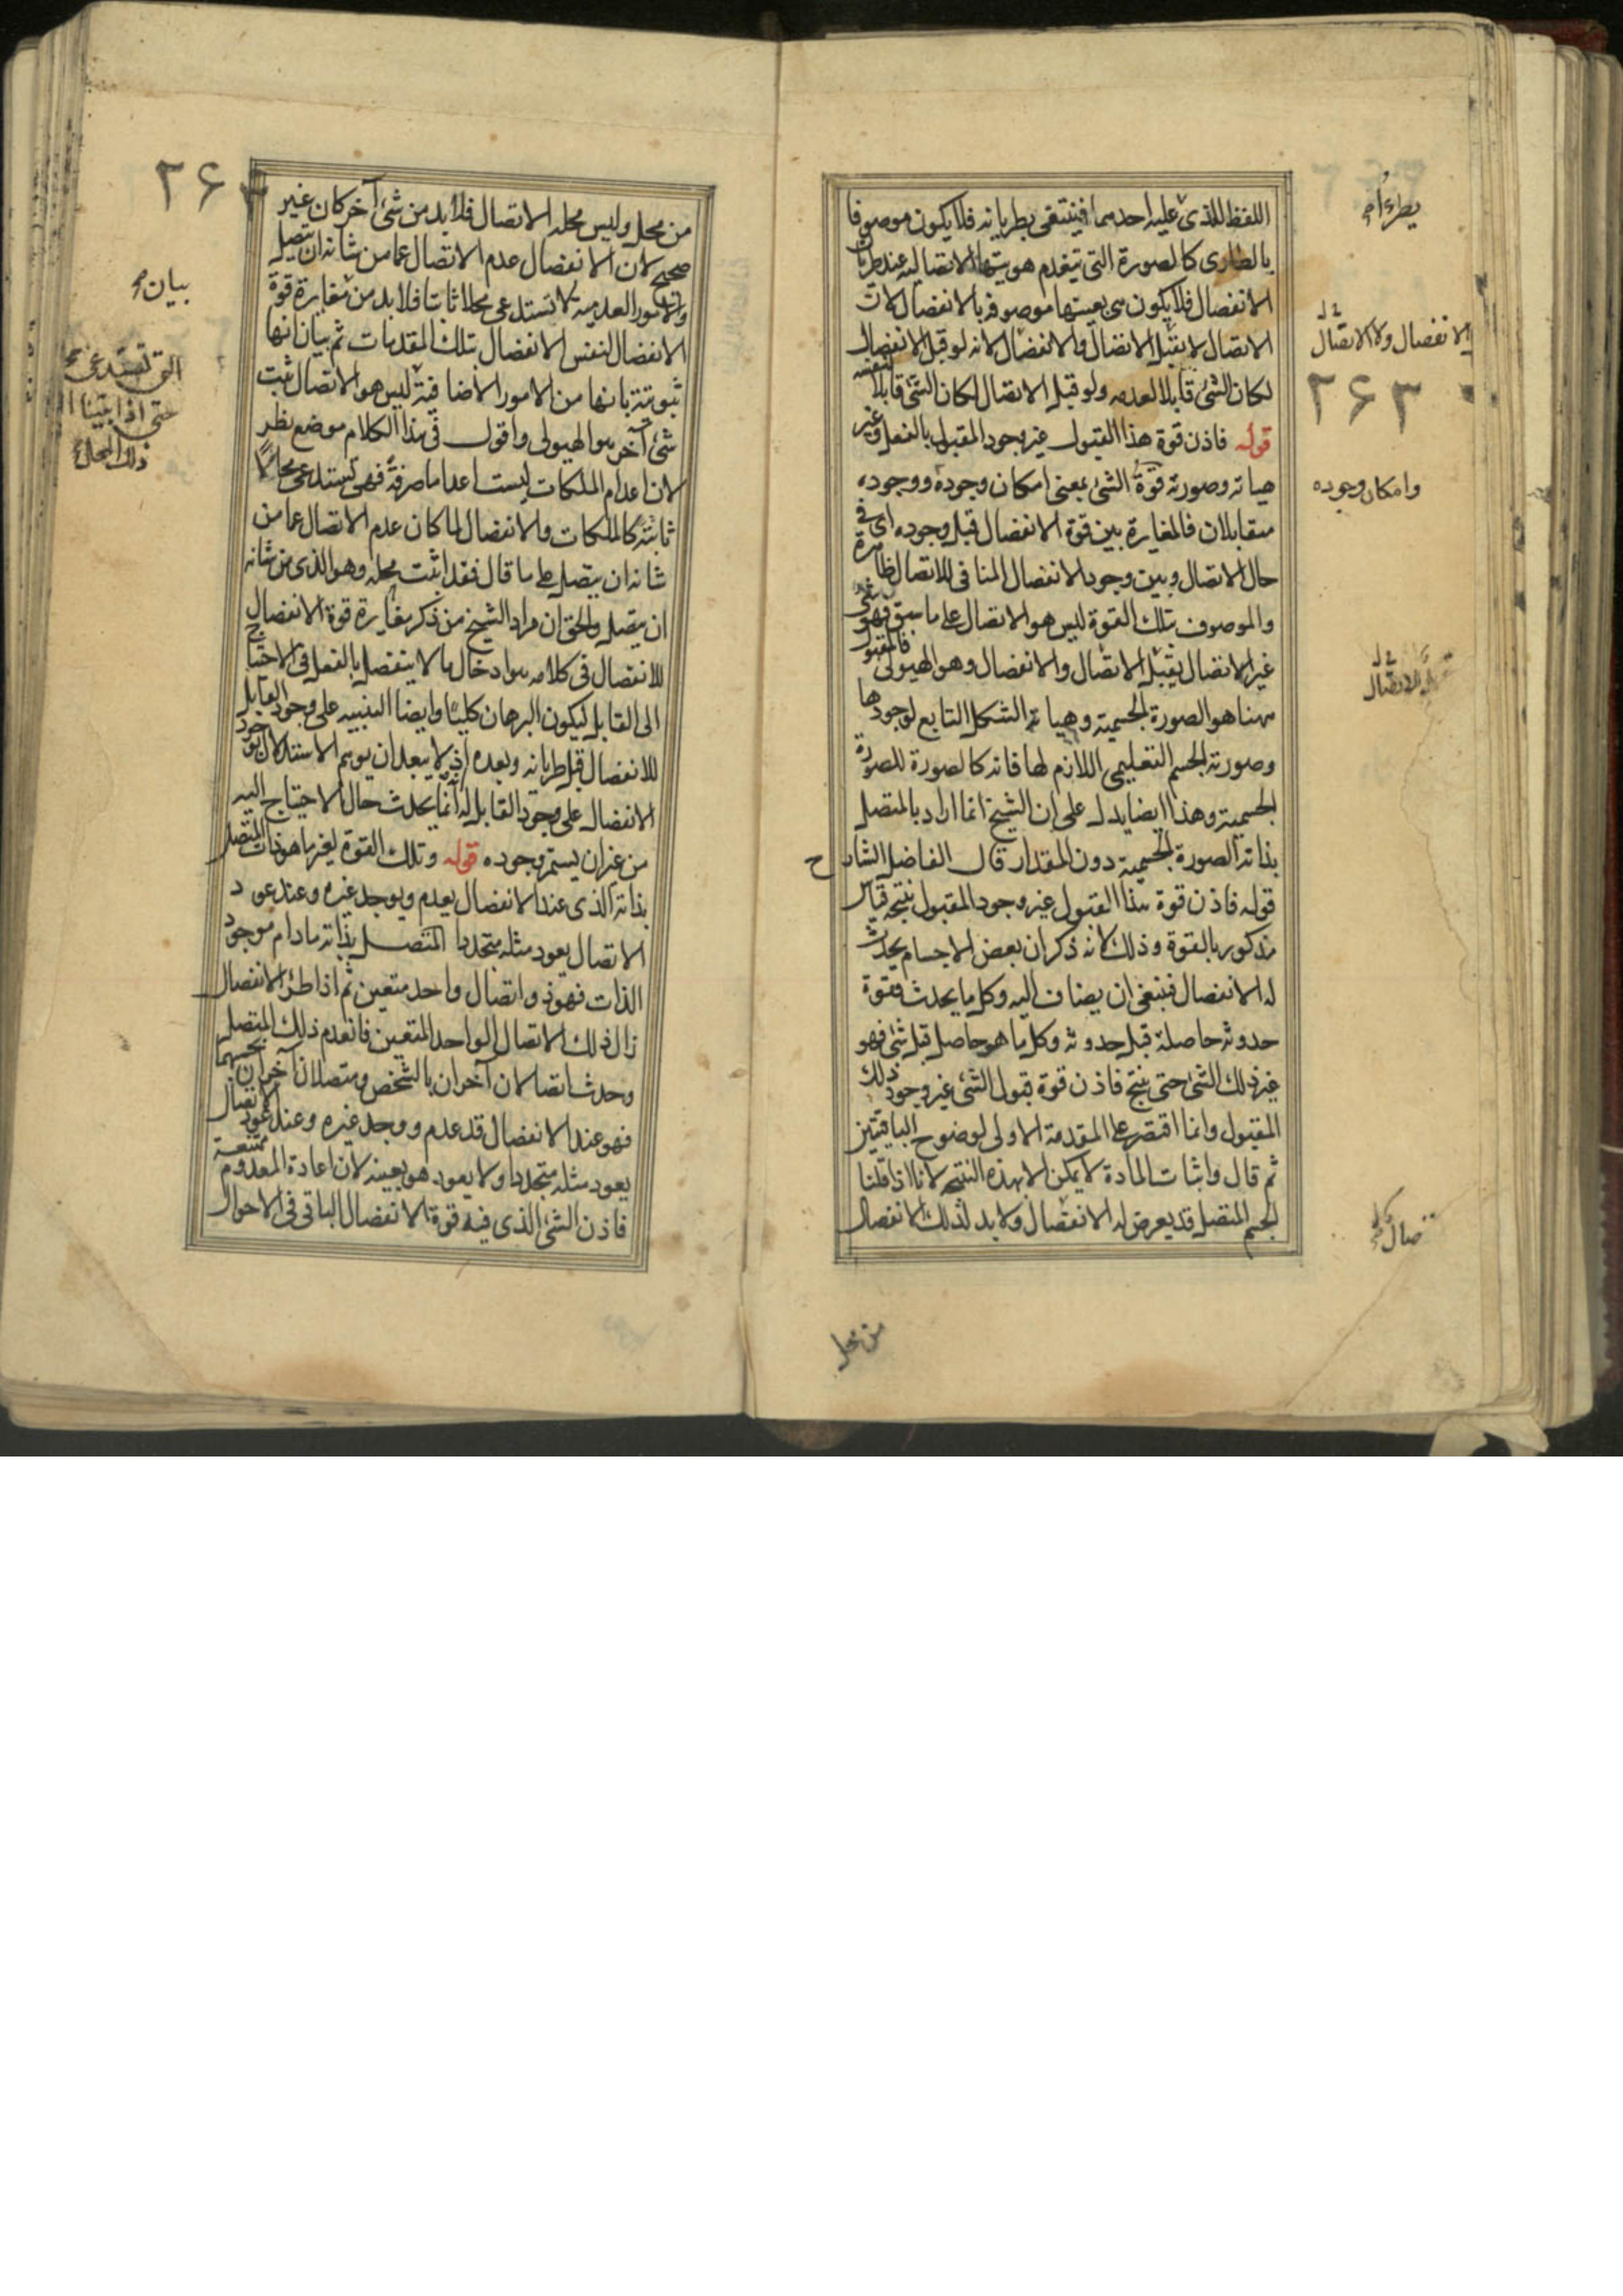 اللفظ للذى عليه احدهما فينتفى بطريانه فلا يكون موصوفا
بالطارى كالصورة التى تنعدم هويتها الاتصاليه عند طريان
الانفصال فلا يكون هى بعينها موصوفه بالانفصال لان
الاتصال لا يقبل الاتصال والانفصال لانه لو قبل الانفصال
لكان الشئ قابلا لعدمه ولو قبل الاتصال لكان الشئ قابلا
لنفسه
قوله فاذن قوة هذا القبول غير وجود المقبول بالفعل وغير
هياته وصورته قوة الشئ بمعنى امكان وجوده ووجوده
متقابلان فالمغايرة بين قوة الانفصال قبل وجوده اى فى
حال الاتصال وبين وجود الانفصال المنافى للاتصال ظاهرة
والموصوف بتلك القوة ليس هو الاتصال على ما سبق فهو شئ
غير الاتصال يقبل الاتصال والانفصال وهو الهيولى فالمقبول
ههنا هو الصورة الجسمية وهياته الشكل التابع لوجودها
وصورته الجسم التعليمى اللازم لها فانه كالصورة للصورة
الجسمية وهذا ايضا يدل على ان الشيخ انما اراد بالمتصل
بذاته الصورة الجسمية دون المقدار قال الفاضل الشارح
قوله فاذن قوة هذا القبول غير وجود المقبول نتيجة قياس
مذكور بالقوة وذلك لانه ذكر ان بعض الاجسام يحدث
له الانفصال فينبغى ان يضاف اليه وكل ما يحدث فقوة
حدوثه حاصلة قبل حدوثه وكل ما هو حاصل قبل شئ فهو
غير ذلك الشئ حتى ينتج فاذن قوة قبول الشئ غير وجود ذلك
المقبول وانما اقتصر على المقدمة الاولى لوضوح الباقيتين
ثم قال واثبات المادة لا يمكن الا بهذه النتيجه لانا اذا قلنا
الجسم المتصل قد يعرض له الانفصال ولا بد لذلك الانفصال
من محل
يطرء
الانفصال ولا الاتصال
٢۶٣
وامكان وجوده
الاتصال
من محل وليس محله الاتصال فلا بد من شئ آخر كان غير
صحيح لان الانفصال عدم الاتصال عما من شانه ان يتصل
والامور العدميه لا تستدعى محلا ثابتا فلا بد من مغايرة قوة
الانفصال لنفس الانفصال بتلك المقدمات ثم بيان انها
ثبوتية بانها من الامور الاضافية ليس هو الاتصال ثبت
شئ آخر هو الهيولى واقول فى هذا الكلام موضع نظر
لان اعدام الملكات ليست اعداما صرفة فهى تستدعى محالا
ثابتة كالملكات والانفصال لما كان عدم الاتصال عما من
شانه ان يتصل على ما قال فقد اثبت محله وهو الذى من شانه
ان يتصل والحق ان مراد الشيخ من ذكر مغايرة قوة الانفصال
للانفصال فى كلامه هو ادخال ما لا ينفصل بالفعل فى الاحتياج
الى القابل ليكون البرهان كليا وايضا التنبيه على وجود القابل
للانفصال قبل طريانه وبعده اذ لا يبعد ان يوهم الاستدلال بوجود
الانفصال على وجود القابل له انه انما يحدث حال الاحتياج اليه
من غير ان يستمر وجوده قوله وتلك القوة لغير ما هو ذات المتصل
بذاته الذى عند الانفصال يعدم ويوجد غيره وعند عود
الاتصال يعود مثله متجددا المتصل بذاته مادام موجود
الذات فهو ذو اتصال واحد متعين ثم اذا طرئ الانفصال
زال ذلك الاتصال الواحد المتعين فانعدم ذلك المتصل
وحدث اتصالان آخران بالشخص ومتصلان آخران بحسبهما
فهو عند الانفصال قد عدم ووجد غيره وعند عود الاتصال
يعود مثله متجددا ولا يعود هو بعينه لان اعادة المعدوم ممتنعة
فاذن الشئ الذى فيه قوة الانفصال الباقى فى الاحوال
٢۶
بيان
التى تستدعى
حتى اذا بينا
ذلك المحل